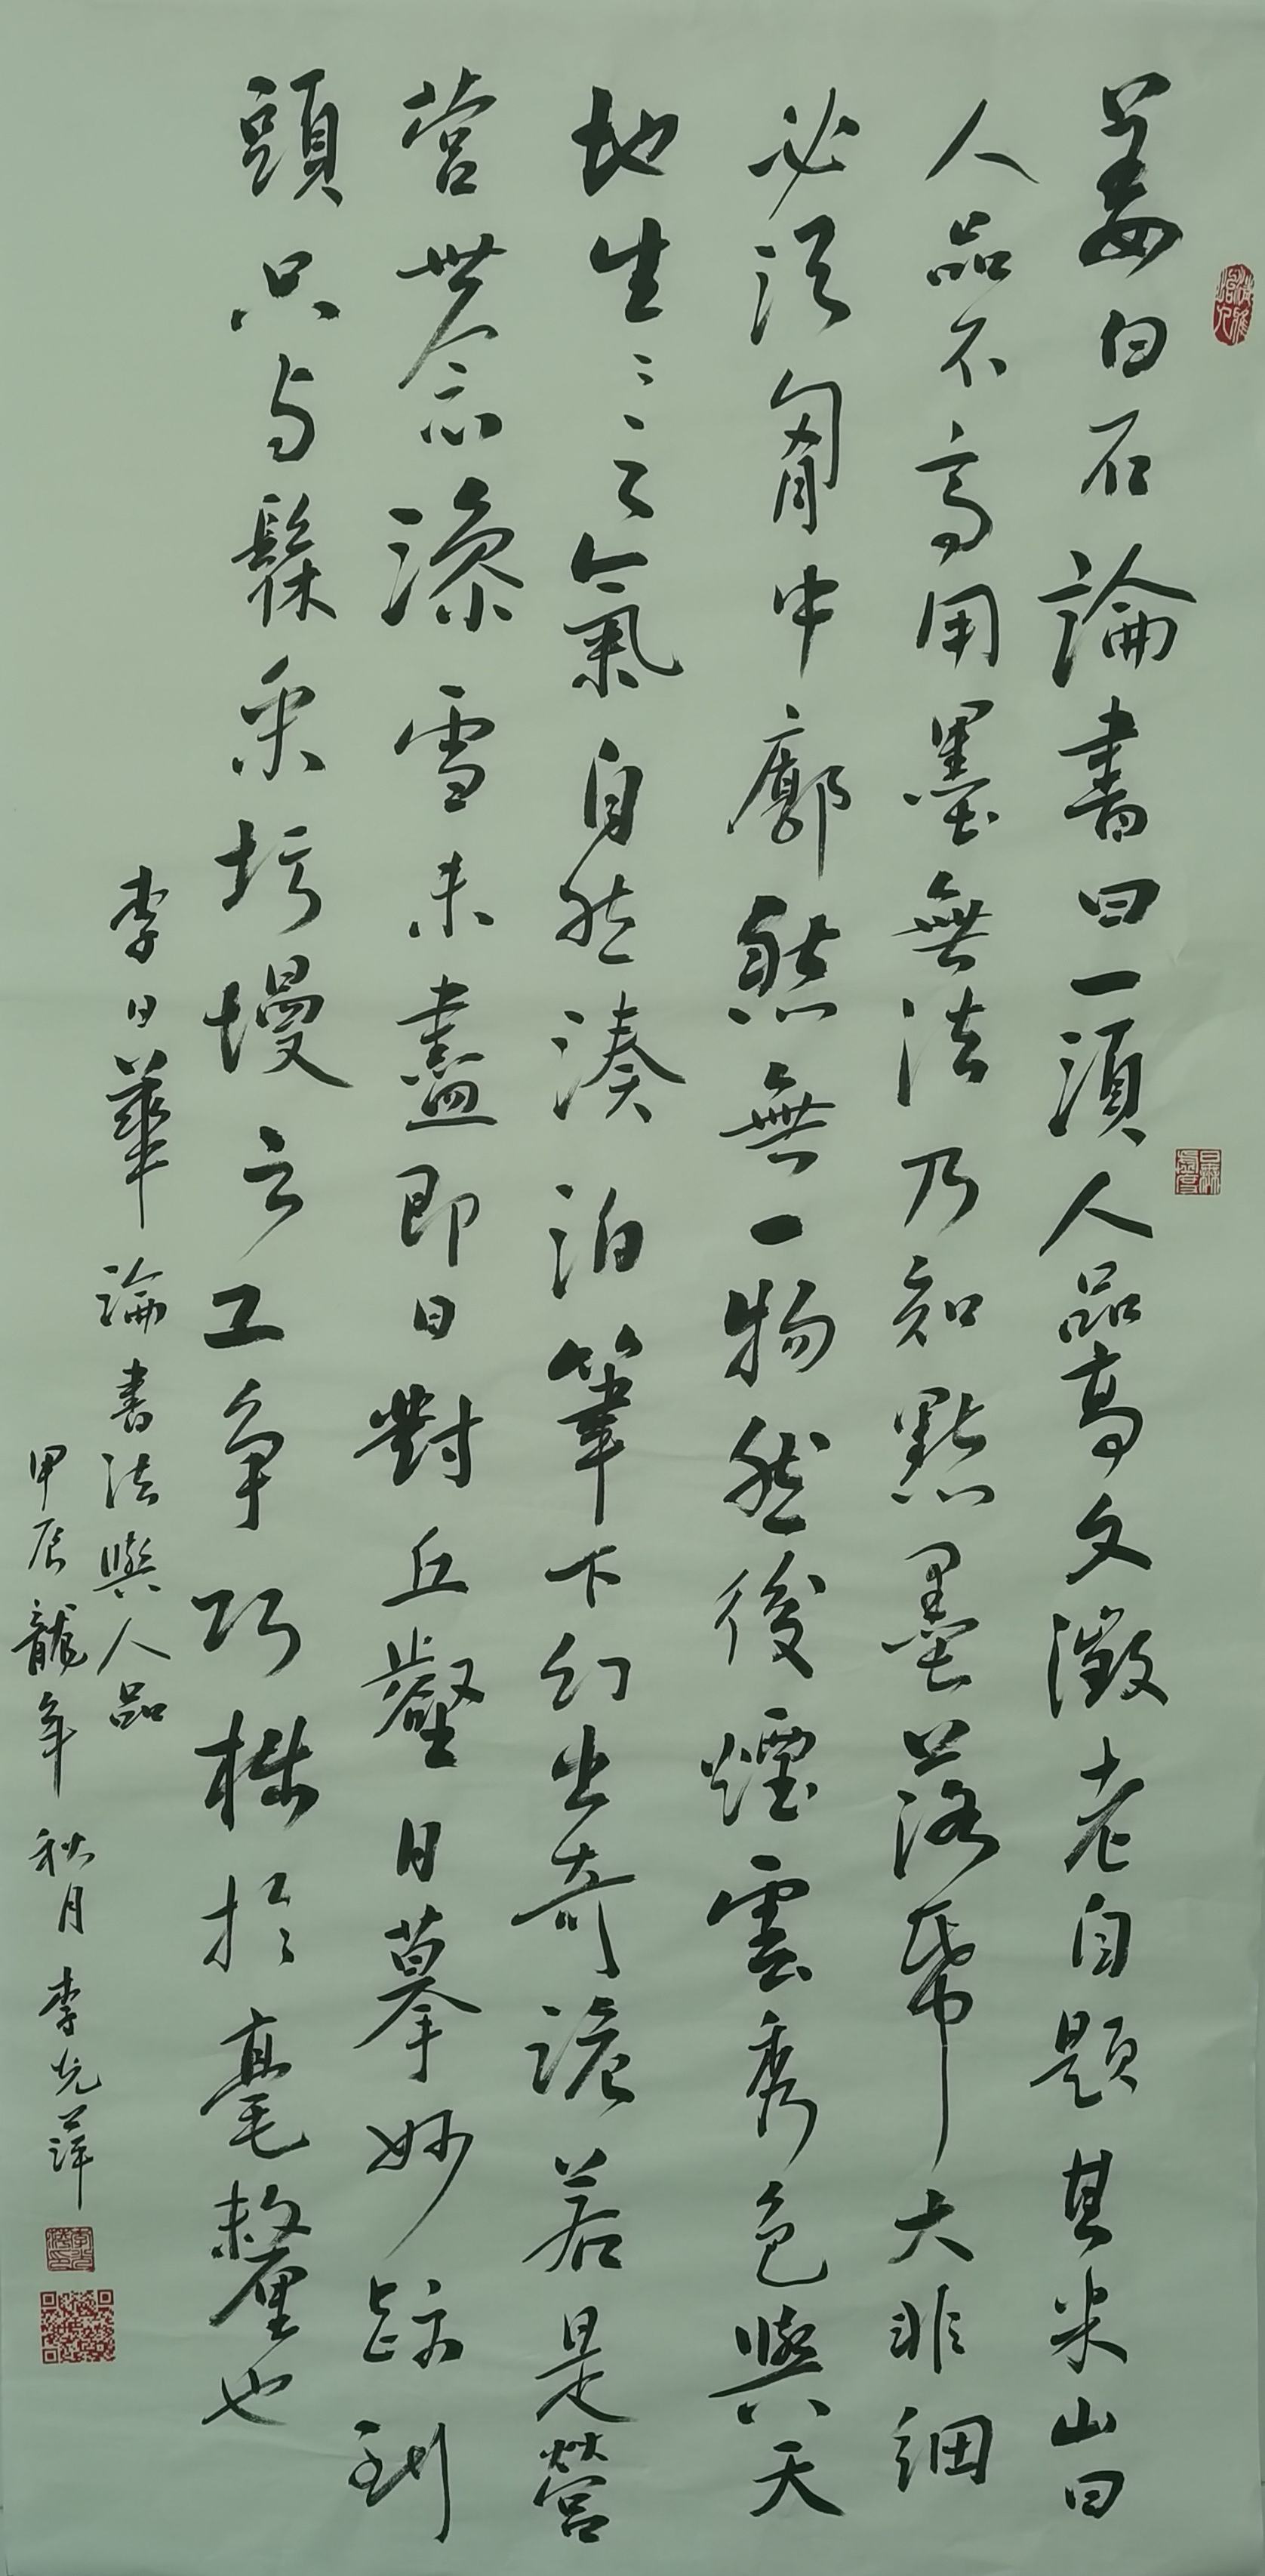 姜白石論書曰一須人品高文徵老自題其米山曰
人品不高用墨無法乃知點墨落帋大非細
必須胷中廓然無一物然後煙雲秀色與天
地生〻之氣自然湊泊筆下幻出奇詭若是營
营世念澡雪未盡即日對丘壑日摹妙跡到
頭只与髹采圬墁之工争巧拙於毫釐也
李日華論書法與人品
甲辰龍年秋月李光萍